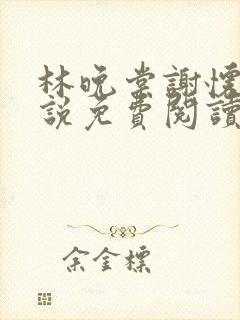 林晚棠謝懷
說免費閱讀
余金標